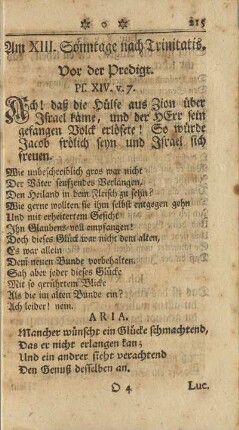 ☼ o ☼ 215
Am XIII. Sonntage nach Trinitatis.
Vor der Predigt.
Ps. XIV. v. 7.
Ach! daß die Hülfe aus Zion über
Israel käme, und der HErr sein
gefangen Volck erlösete! So würde
Jacob frölich seyn und Israel sich
freuen.
Wie unbeschreiblich gros war nicht
Der Väter seufzendes Verlangen,
Den Heiland in dem Fleisch zu sehn?
Wie gerne wollten sie ihm selbst entgegen gehn
Und mit erheitertem Gesicht
Ihn Glaubens-voll empfangen!
Doch dieses Glück war nicht dem alten,
Es war allein
Dem neuen Bunde vorbehalten.
Sah aber jeder dieses Glücke
Mit so gerührtem Blicke
Als die im alten Bunde ein?
Ach leider! nein.
ARIA.
Mancher wünscht ein Glücke schmachtend,
Das er nicht erlangen kan;
Und ein andrer sieht verachtend
Den Genuß desselben an.
O 4 Luc.